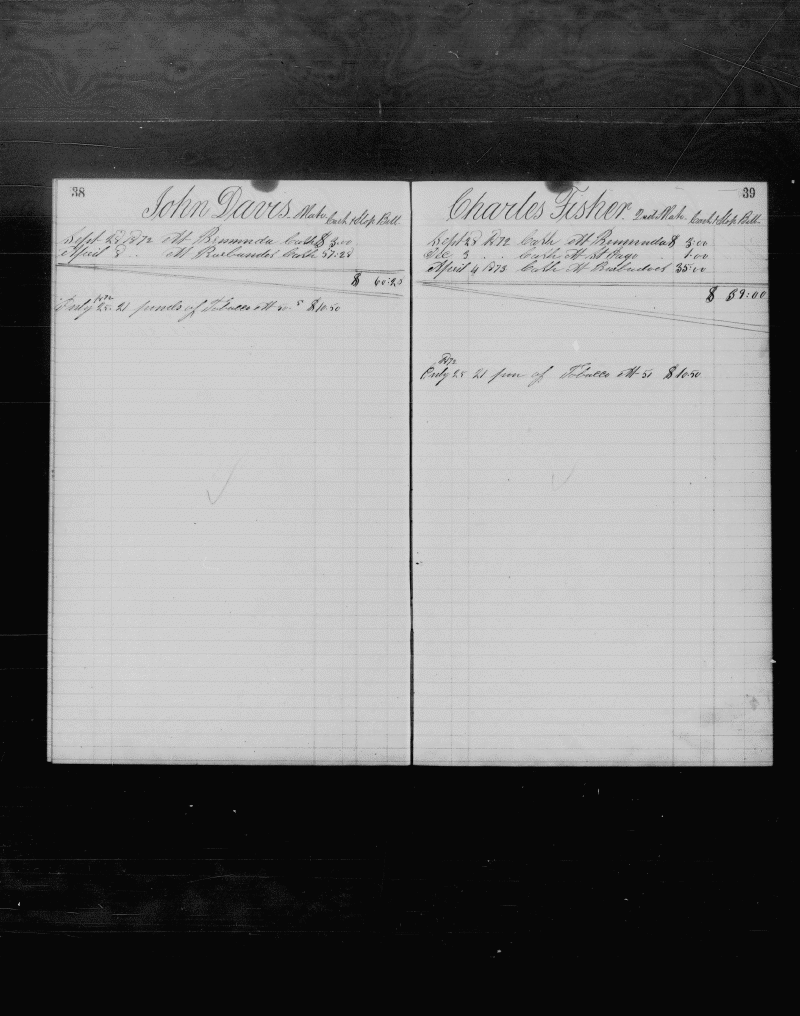 38
John Davis. Mate. Cash & Slop Bill.
Sept 25 1872 At Bermuda Cash $ 3.00
April 3 . . At Barbados Cash 57.25
$ 60:25
1872
July 25. 21 pounds of Tobacco At 50 $10.50
39
Charles Fisher. 2nd Mate. Cash & Slop Bill.
Sept 25 1872 Cash At Bermuda $ 3.00
Dec 3 . . Cash At St Iago 1.00
April 4 1873 Cash At Barbados 35.00
$ 39:00
1872
July 25 21 poun of Tobacco At 50 $10.50